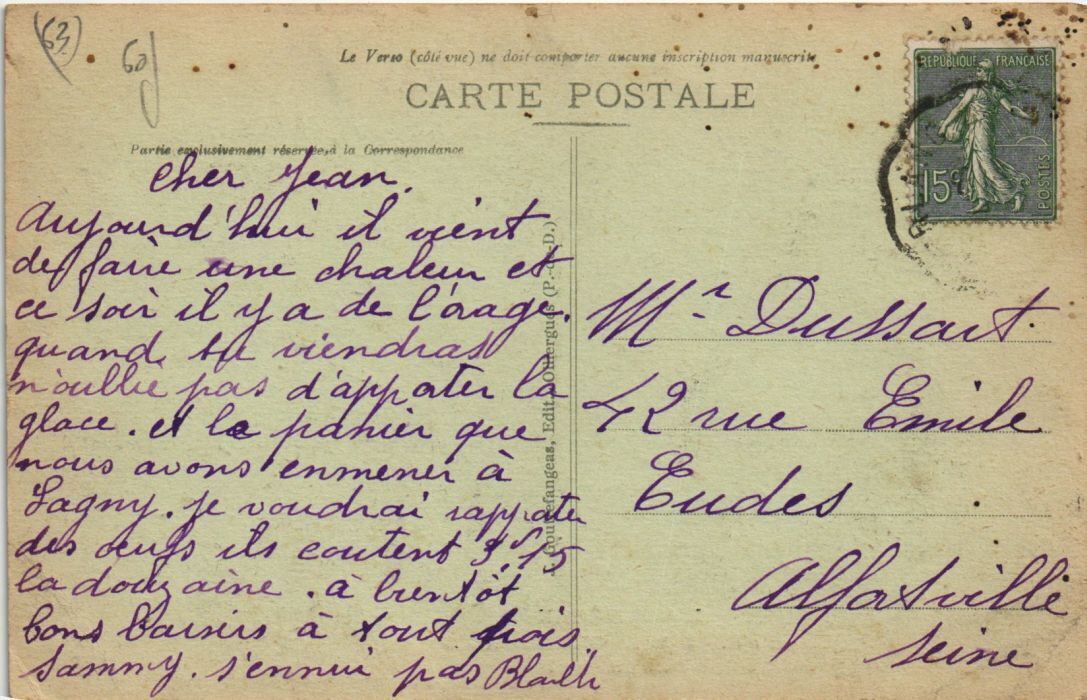 63
60
Le Verso (côté vue) ne doit comporter aucune inscription manuscrite
CARTE POSTALE
Partie exclusivement réservée à la Correspondance
RÉPUBLIQUE FRANÇAISE
15c
POSTES
cher Jean.
Aujourd'hui il vient
de faire une chaleur et
ce soir il y a de l'orage.
quand tu viendras
n'oublie pas d'appater la
glace. et le panier que
nous avons enmener à
Lagny. je voudrai rappater
des oeufs ils coutent 3f,15
la douzaine. à bientôt
bons baisers à tout trois
Sammy. s'ennui pas
Edit., Domergues (P.-de-D.)
Mr Dussart
42 rue Emile
Eudes
Alfortville
Seine